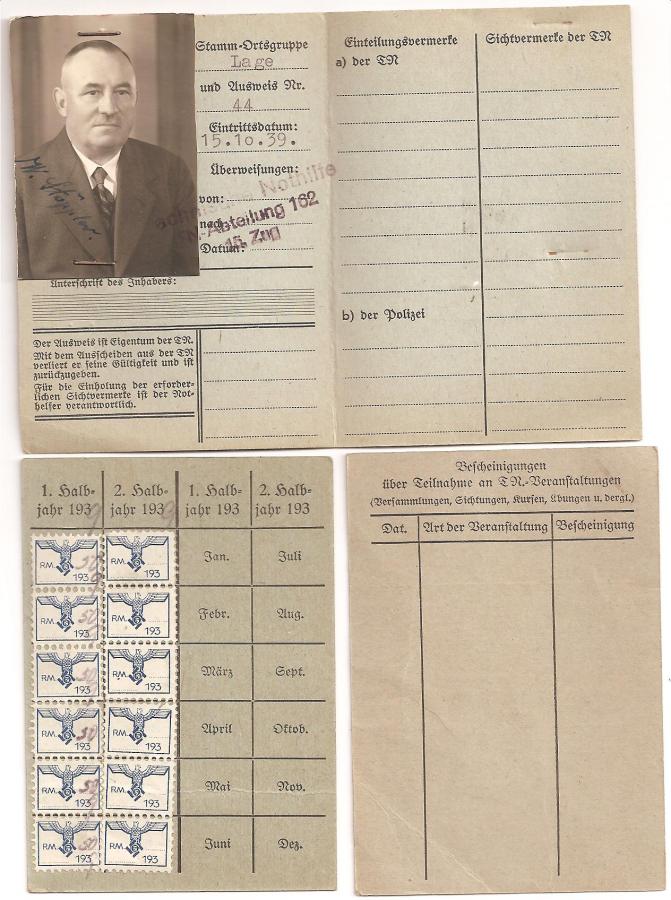 Stamm-Ortsgruppe
Lage
und Ausweis Nr.
44
Eintrittsdatum:
15.10.39.
Überweisungen:
von:
nach
Datum:
Nothilfe
Abteilung 162
15. Zug
Unterschrift des Inhabers:
Der Ausweis ist Eigentum der TN.
Mit dem Ausscheiden aus der TN
verliert er seine Gültigkeit und ist
zurückzugeben.
Für die Einholung der erforder-
lichen Sichtvermerke ist der Not-
helfer verantwortlich.
Einteilungsvermerke
a) der TN
b) der Polizei
Sichtvermerke der TN
1. Halb- 2. Halb- 1. Halb- 2. Halb-
jahr 193 jahr 193 jahr 193 jahr 193
RM. 50 193 193 Jan. Juli
RM. 50 193 RM. 193 Febr. Aug.
RM. 50 193 RM. 193 März Sept.
RM. 50 193 RM. 193 April Oktob.
RM. 50 193 RM. 193 Mai Nov.
RM. 50 193 RM. 193 Juni Dez.
Bescheinigungen
über Teilnahme an TN.-Veranstaltungen
(Versammlungen, Sichtungen, Kursen, Übungen u. dergl.)
Dat. Art der Veranstaltung Bescheinigung